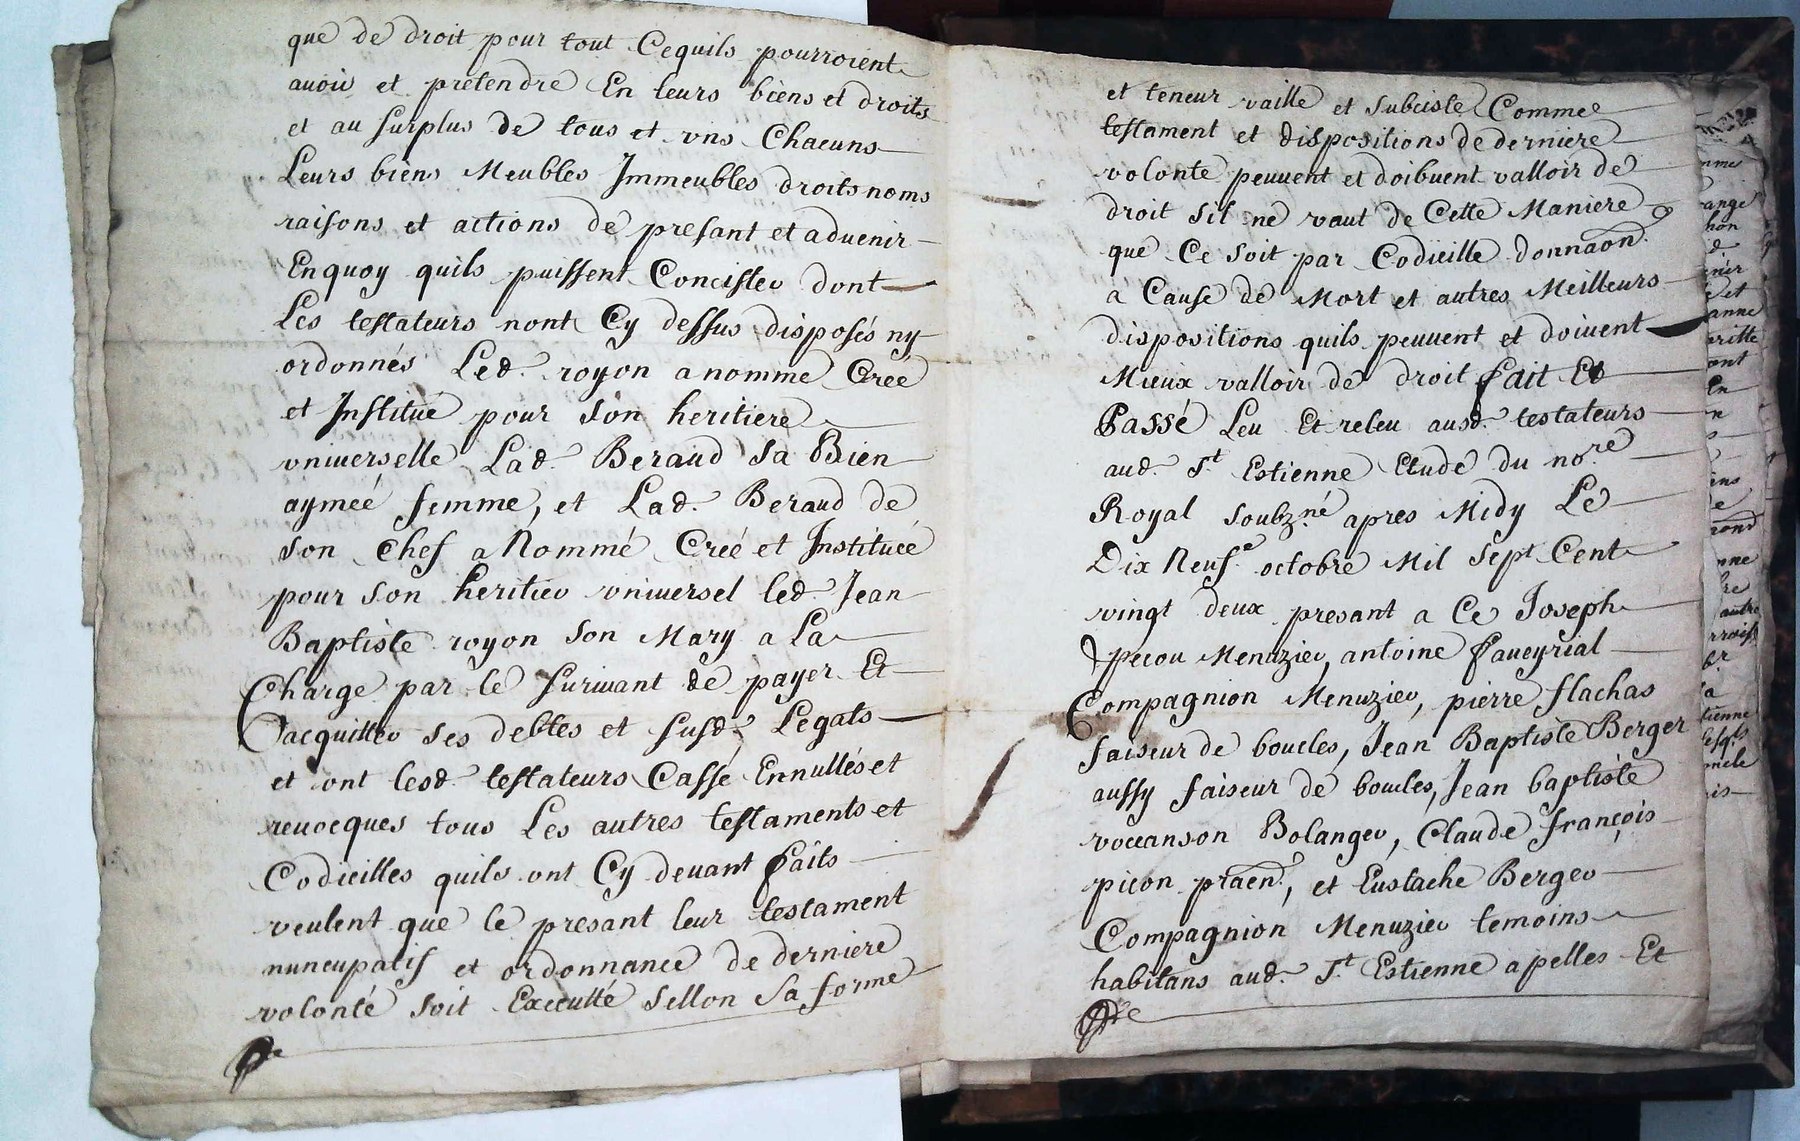 que de droit pour tout Cequils pourroient
auoir et pretendre En leurs biens et droits
et au surplus de tous et vns Chacuns
Leurs biens Meubles Immeubles droits noms
raisons et actions de presant et aduenir
Enquoy quils puissent Concister dont
Les testateurs nont Cy dessus disposés ny
ordonnés Led. royon a nomme Creé
et Institué pour son heritiere
vniuerselle Lad. Beraud sa Bien
aymeé femme, et Lad. Beraud de
son chef a Nommé Creé et Instituée
pour son heritier vniuersel led. Jean
Baptiste royon son Mary a La
Charge par le suruiuant de payer Et
acquitter ses debtes et susd. Legats
et ont lesd. testateurs Cassé Ennullés et
reuocques tous Les autres testaments et
Codicilles quils ont Cy deuant faits
veulent que le presant leur testament
nuncupatif et ordonnance de derniere
volonté soit Executté sellon sa forme
et teneur vaille et subciste Comme
testament et dispositions de derniere
volonte peuuent et doibuent valloir de
droit sil ne vaut de Cette Maniere
que Ce soit par Codicille donnaon.
a Cause de Mort et autres Meilleurs
dispositions quils peuuent et doiuent
Mieux valloir de droit fait Et
Passé Leu Et releu ausd. testateurs
aud. St. Estienne Etude du nore
Royal soubz.né apres Midy Le
Dix Neufe. octobre Mil sept Cent
vingt deux presant a Ce Joseph
pecou Menuzier, antoine faucyrial
Compagnion Menuzier, pierre flachas
faiseur de boucles, Jean Baptiste Berger
aussy faiseur de boucles, Jean baptiste
voccanson Bolanger, Claude françois
picon praen., et Eustache Berger
Compagnion Menuzier temoins
habitans aud. St. Estienne apelles Et
anne
ont
En
autre
tienne